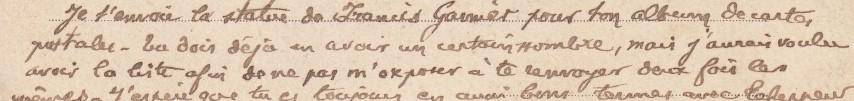 Je t'envoie la statue de Francis Garnier pour ton album de cartes
postales - tu dois déjà en avoir un certain nombre, mais j'aurais voulu
avoir la liste afin de ne pas m'exposer à te renvoyer deux fois les
mêmes - J'espère que tu es toujours en aussi bons termes avec